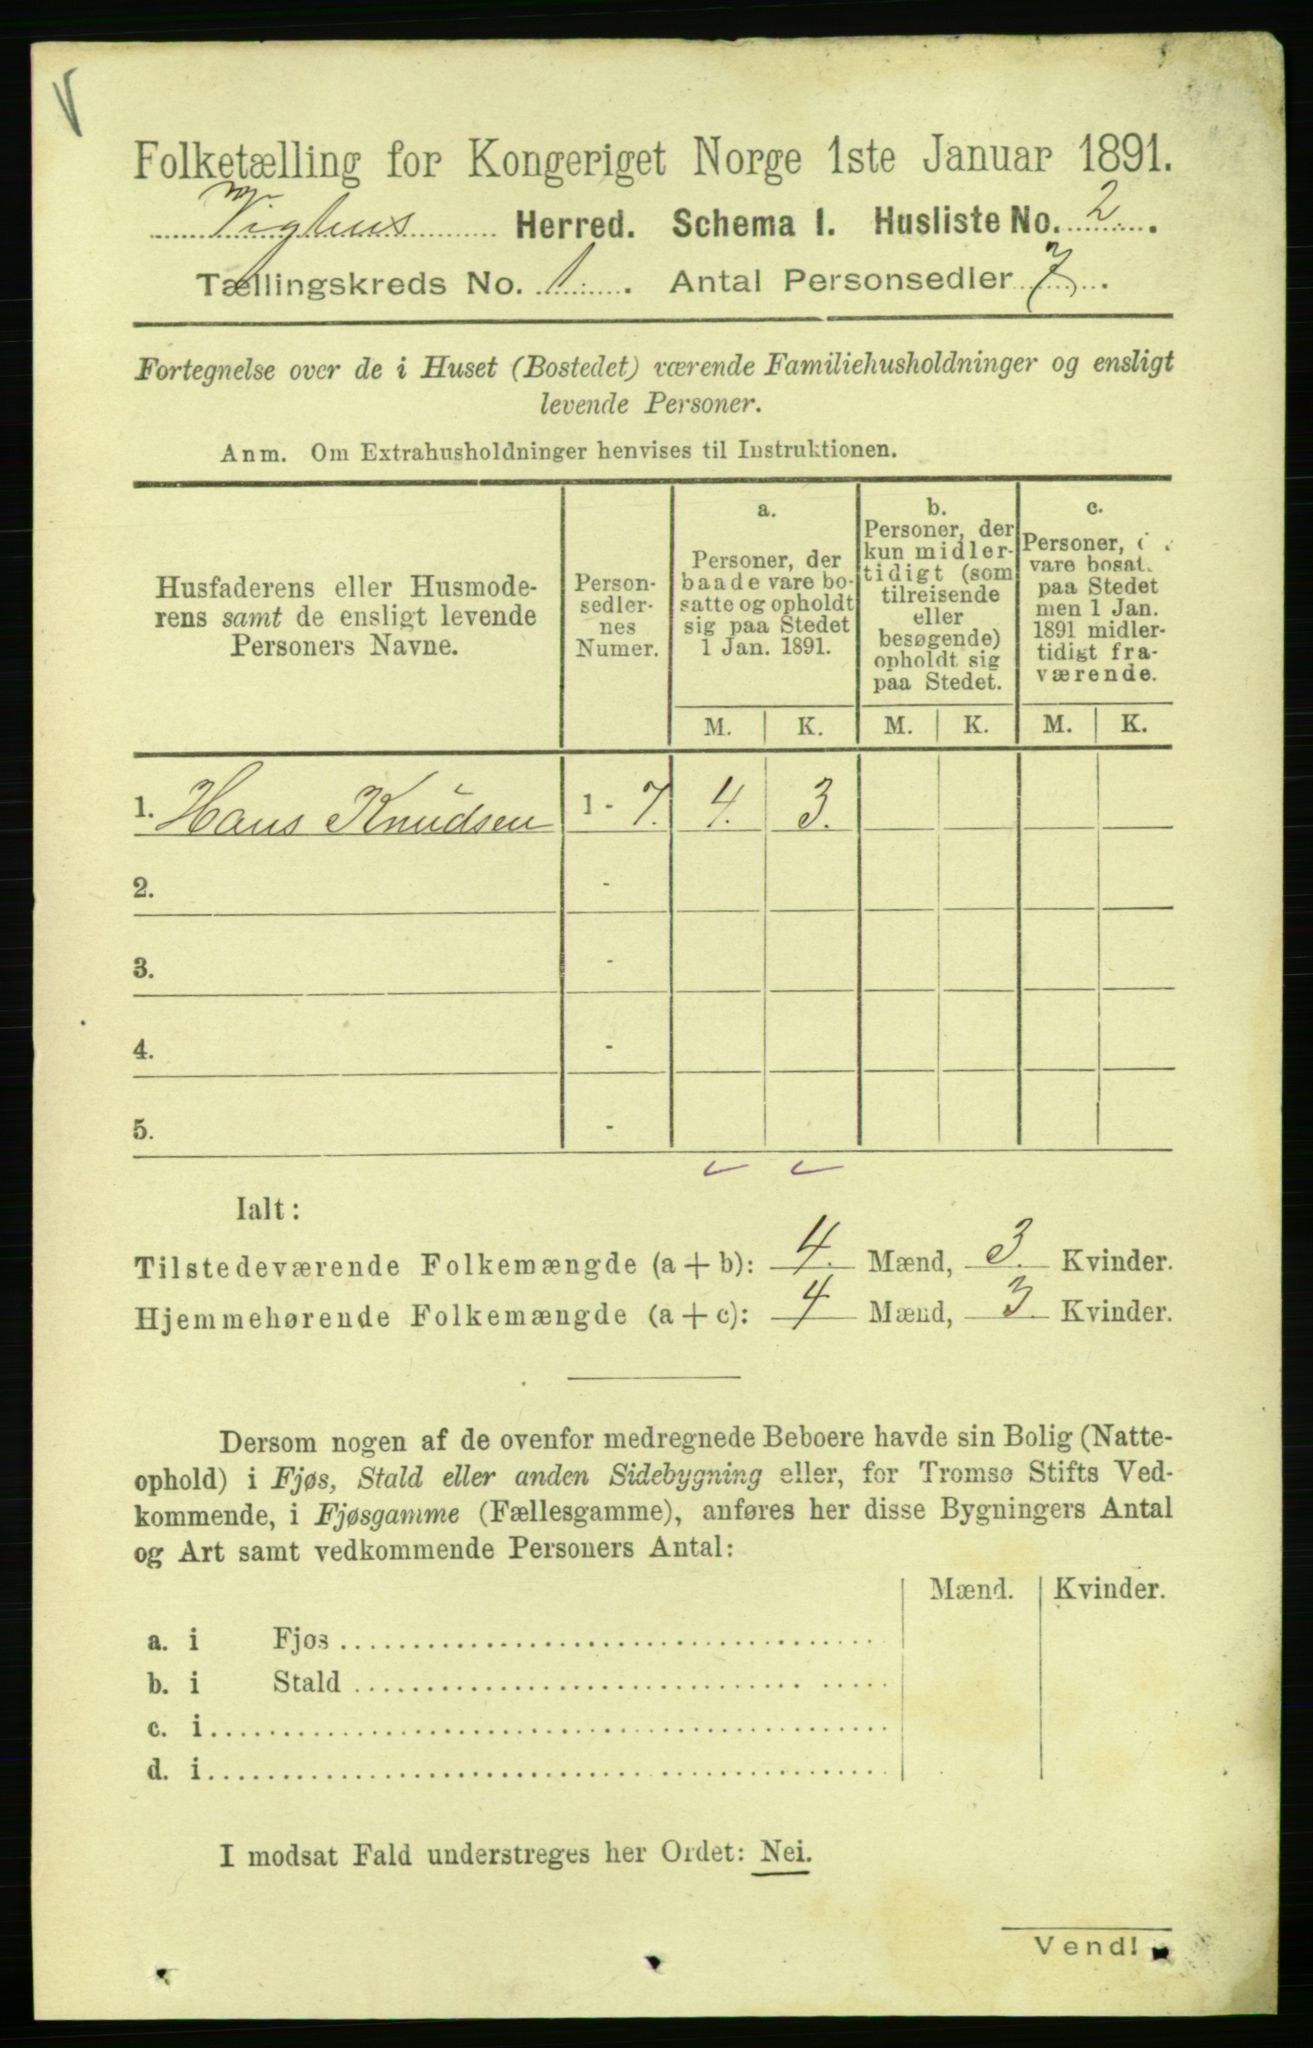 Folketælling for Kongeriget Norge 1ste Januar 1891.
Vighus Herred. Schema I. Husliste No. 2.
Tællingskreds No. 1. Antal Personsedler 7.
Fortegnelse over de i Huset (Bostedet) værende Familiehusholdninger og ensligt
levende Personer.
Anm. Om Extrahusholdninger henvises til Instruktionen.
Husfaderens eller Husmode-
rens samt de ensligt levende
Personers Navne.
Person-
sedler-
nes
Numer.
a.
Personer, der
baade vare bo-
satte og opholdt
sig paa Stedet
1 Jan. 1891.
b.
Personer, der
kun midler-
tidigt (som
tilreisende
eller
besøgende)
opholdt sig
paa Stedet.
c.
Personer,
vare bosat.
paa Stedet
men 1 Jan.
1891 midler-
tidigt fra-
værende.
M. K. M. K. M. K.
1. Hans Knudsen 1 - 7. 4. 3.
2. -
3. -
4. -
5. -
Ialt:
Tilstedeværende Folkemængde (a + b): 4. Mænd, 3. Kvinder.
Hjemmehørende Folkemængde (a + c): 4 Mænd, 3. Kvinder.
Dersom nogen af de ovenfor medregnede Beboere havde sin Bolig (Natte-
ophold) i Fjøs, Stald eller anden Sidebygning eller, for Tromsø Stifts Ved-
kommende, i Fjøsgamme (Fællesgamme), anføres her disse Bygningers Antal
og Art samt vedkommende Personers Antal:
Mænd. Kvinder.
a. i Fjøs
b. i Stald
c. i
d. i
I modsat Fald understreges her Ordet: Nei.
Vend!